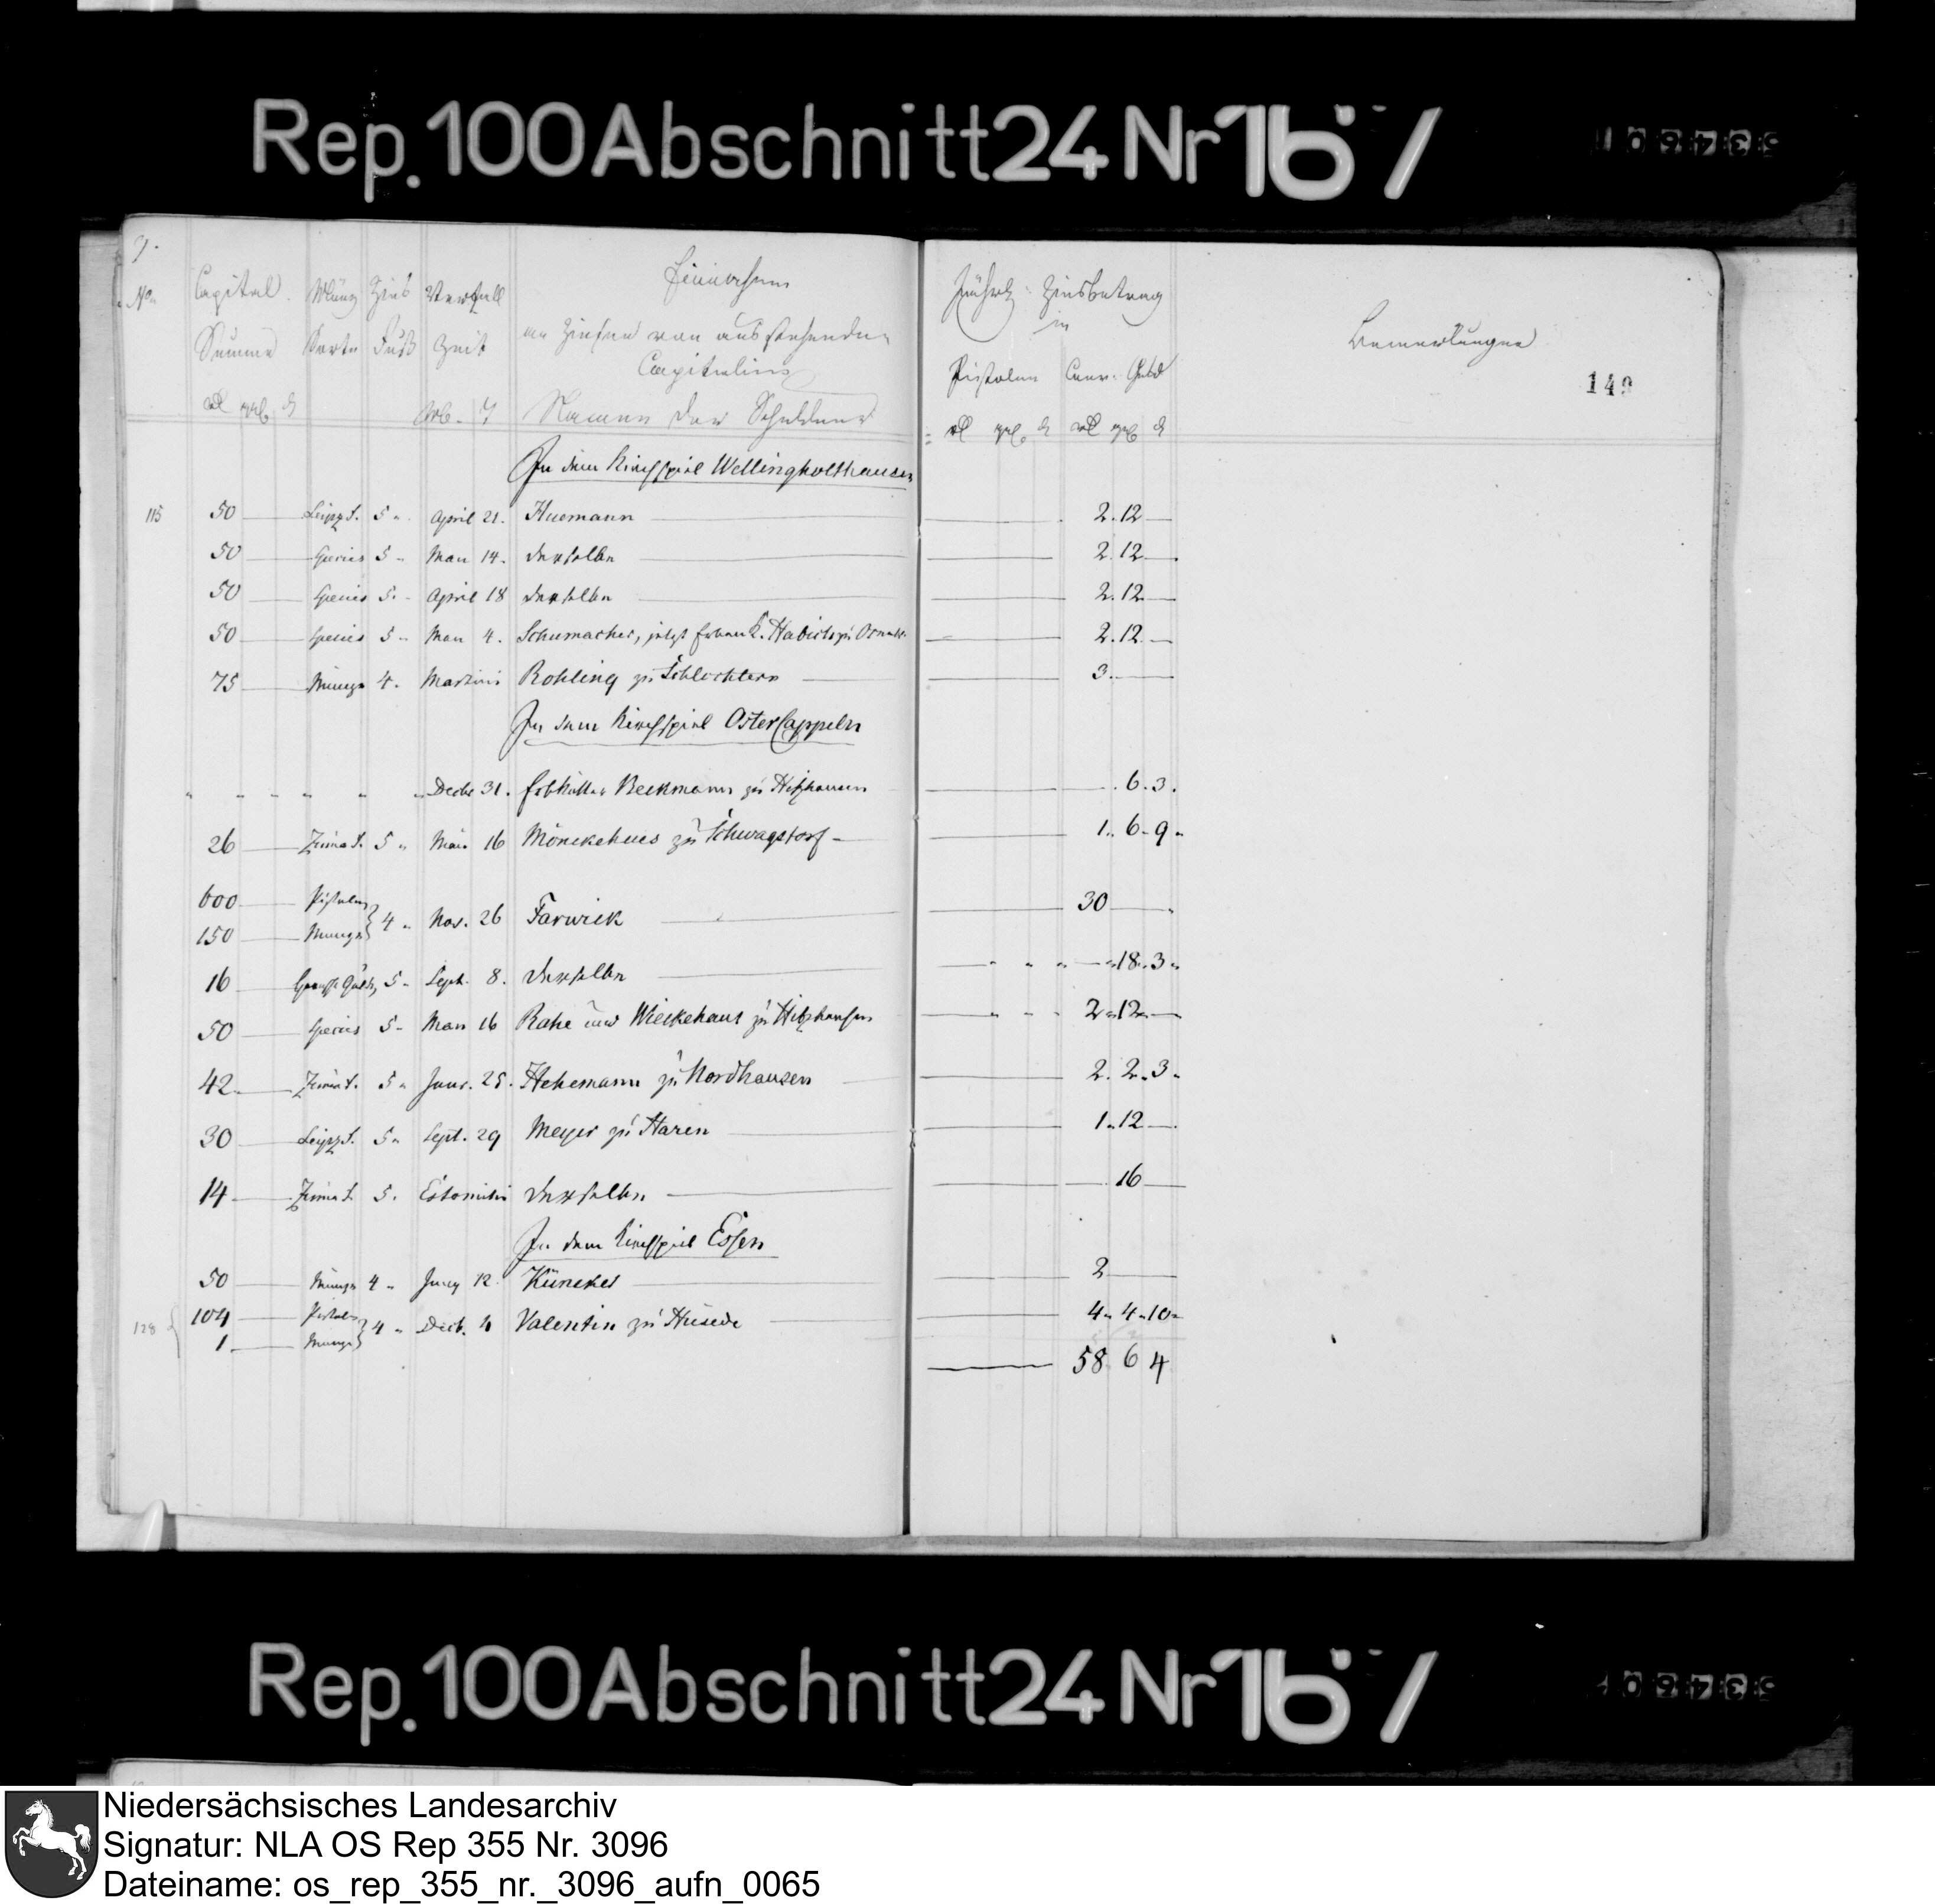 Rep. 100 Abschnitt 24 Nr 167
7.
No. Capital Münz Zins Verfall Einnahme
Summe Sorte Fuß Zeit an Zinsen von ausstehenden
Capitalien
Namen der Schuldner
Jährl. Zinsbetrag
in
Pistolen Conv. Geld
Bemerkungen
149
In dem Kirchspiel Wellingholthausen
115 50 Leipz. f. 5 April 21. Huemann 2. 12
50 Species 5 May 14. derselbe 2. 12
50 Species 5. April 18 derselbe 2. 12
50 Species 5 May 4. Schumacher, jetzt 2. 12
75 Münze 4. Martini Rohling zu Schlochtern 3.
In dem Kirchspiel OsterCappeln
Decbr 31. Erbkötter Beckmann zu Hitzhausen 6. 3.
26 Zinna f. 5 Mai 16 Mönckehues zu Schwagstorf 1. 6. 9
600 Pistolen
150 Münze 4 Nov. 26 Farwick 30
16 5 Sept. 8. derselbe 18. 3
50 Species 5 May 16 Rahe und Wieckehaus zu Hitzhausen 2. 12
42 Zinna f. 5 Janr. 25. Hehemann zu Nordhausen 2. 2. 3
30 Leipz. f. 5 Sept. 29 Meyer zu Haren 1. 12
14 Zinna f. 5. Estomihi derselbe 16
In dem Kirchspiel Essen
50 Münze 4 Juny 12 Künekes 2
104 Pistolen
128 1. Münze 4 Decb. 4 Valentin zu Hüsede 4. 4. 10
58 6 4
Rep. 100 Abschnitt 24 Nr 167
Niedersächsisches Landesarchiv
Signatur: NLA OS Rep 355 Nr. 3096
Dateiname: os_rep_355_nr._3096_aufn_0065